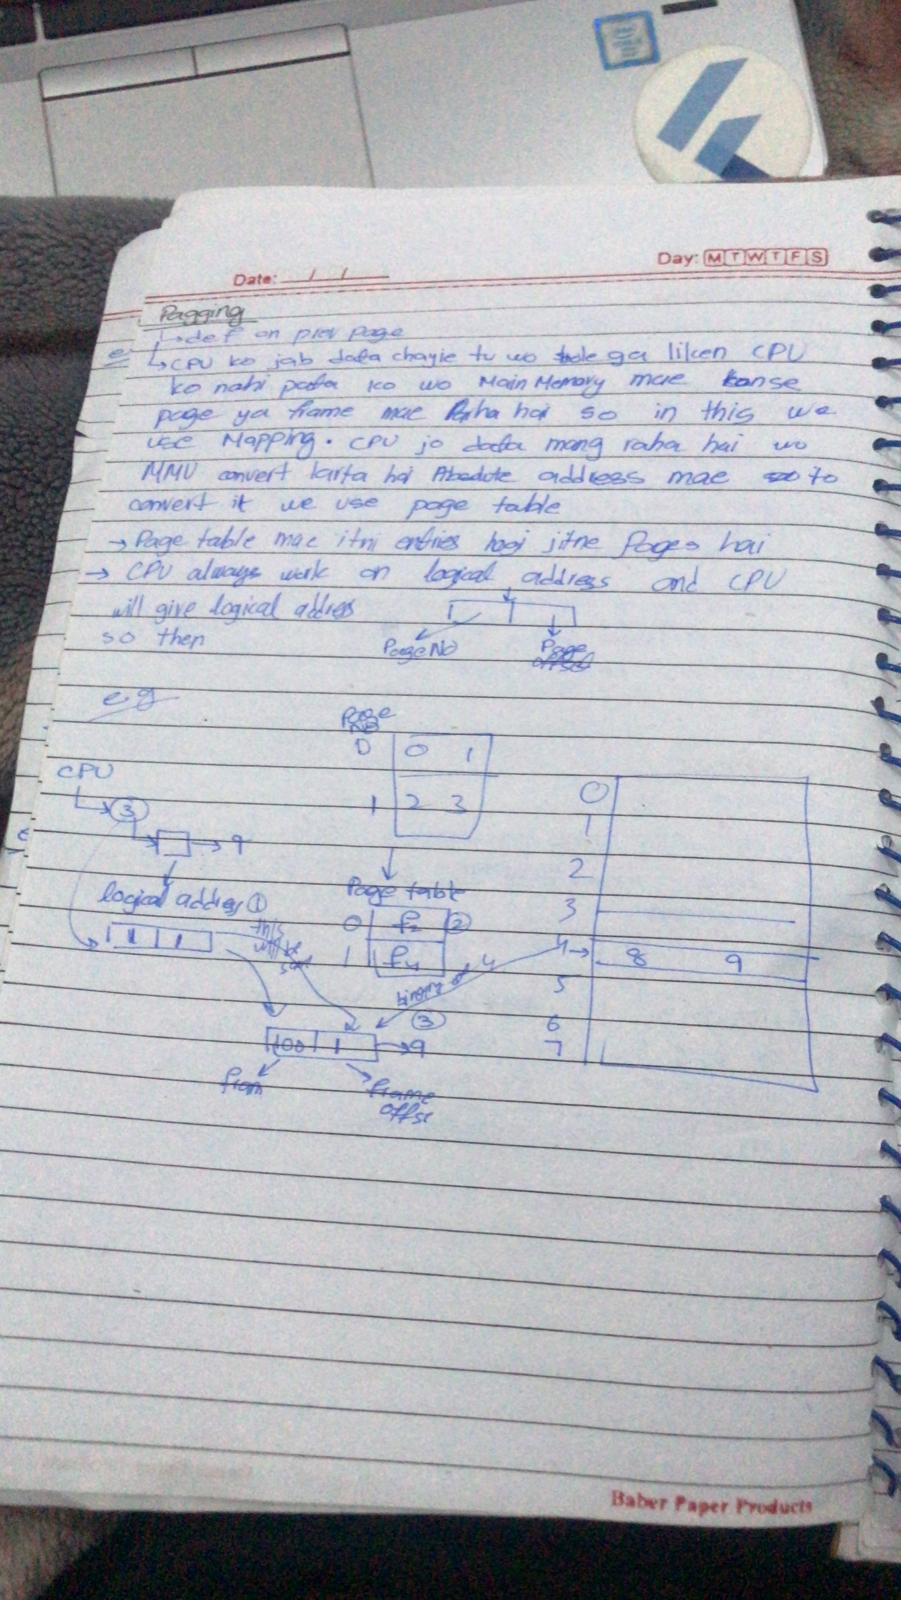 Day: M T W T F S
Date: / /
Pagging
→ def on prev page
↳ CPU ko jab data chayie tu wo ga liken CPU
ko nahi pata ko wo Main Memory mae konse
page ya frame mae Rha hai so in this we
use Mapping. CPU jo data mang raha hai wo
MMU convert karta hai Absolute address mae to
convert it we use page table
→ Page table mae itni entries hogi jitne Pages hai
→ CPU always work on logical address and CPU
will give logical address
so then
Page No
Page offset
e.g
Page No
0 0 1
1 2 3
CPU
③
→ 9
logical address ①
1 1
this will be
Page table
0 f2 ②
1 f4
binary of 4
③
100 1 → 9
fram
frame
offse
0
1
2
3
4 → 8 9
5
6
7
Baber Paper Products